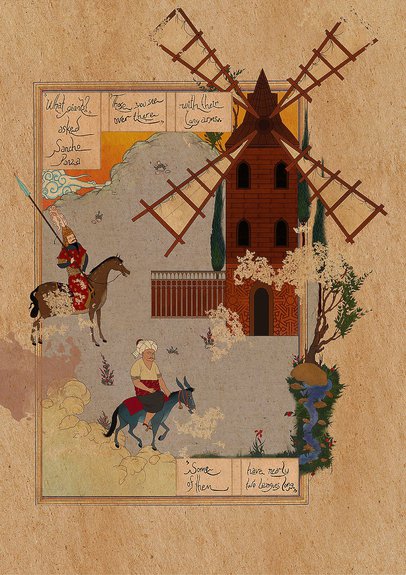 "What giants?
asked
Sancho
Panza
"Those you see
over there
with their
long arms.
"Some
of them
have nearly
two leagues long"